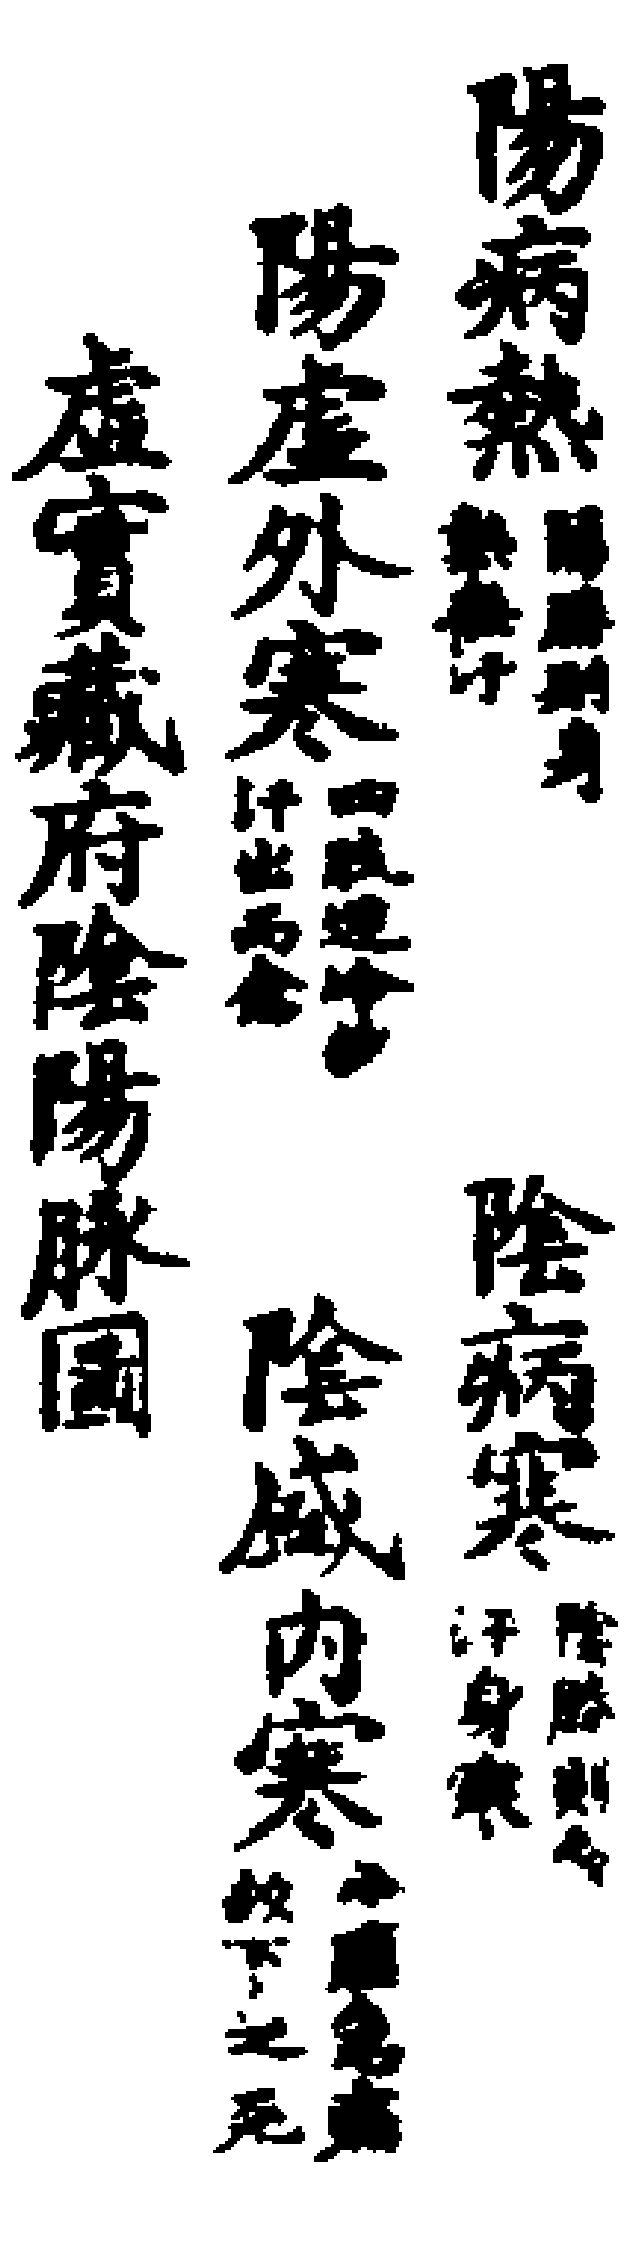 陽病熱
陽勝則身
熱無汗
陰病寒
陰勝則
汗身寒
陽虛外寒
四肢逆
汗出而
陰盛內寒
故下之死
虛實藏府陰陽脉圖